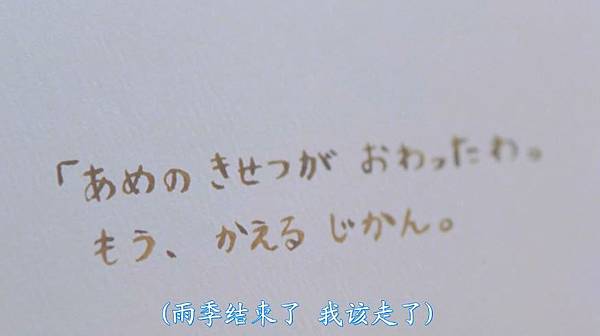 「あめの きせつが おわったわ。
もう、かえる じかん。
(雨季结束了 我该走了)